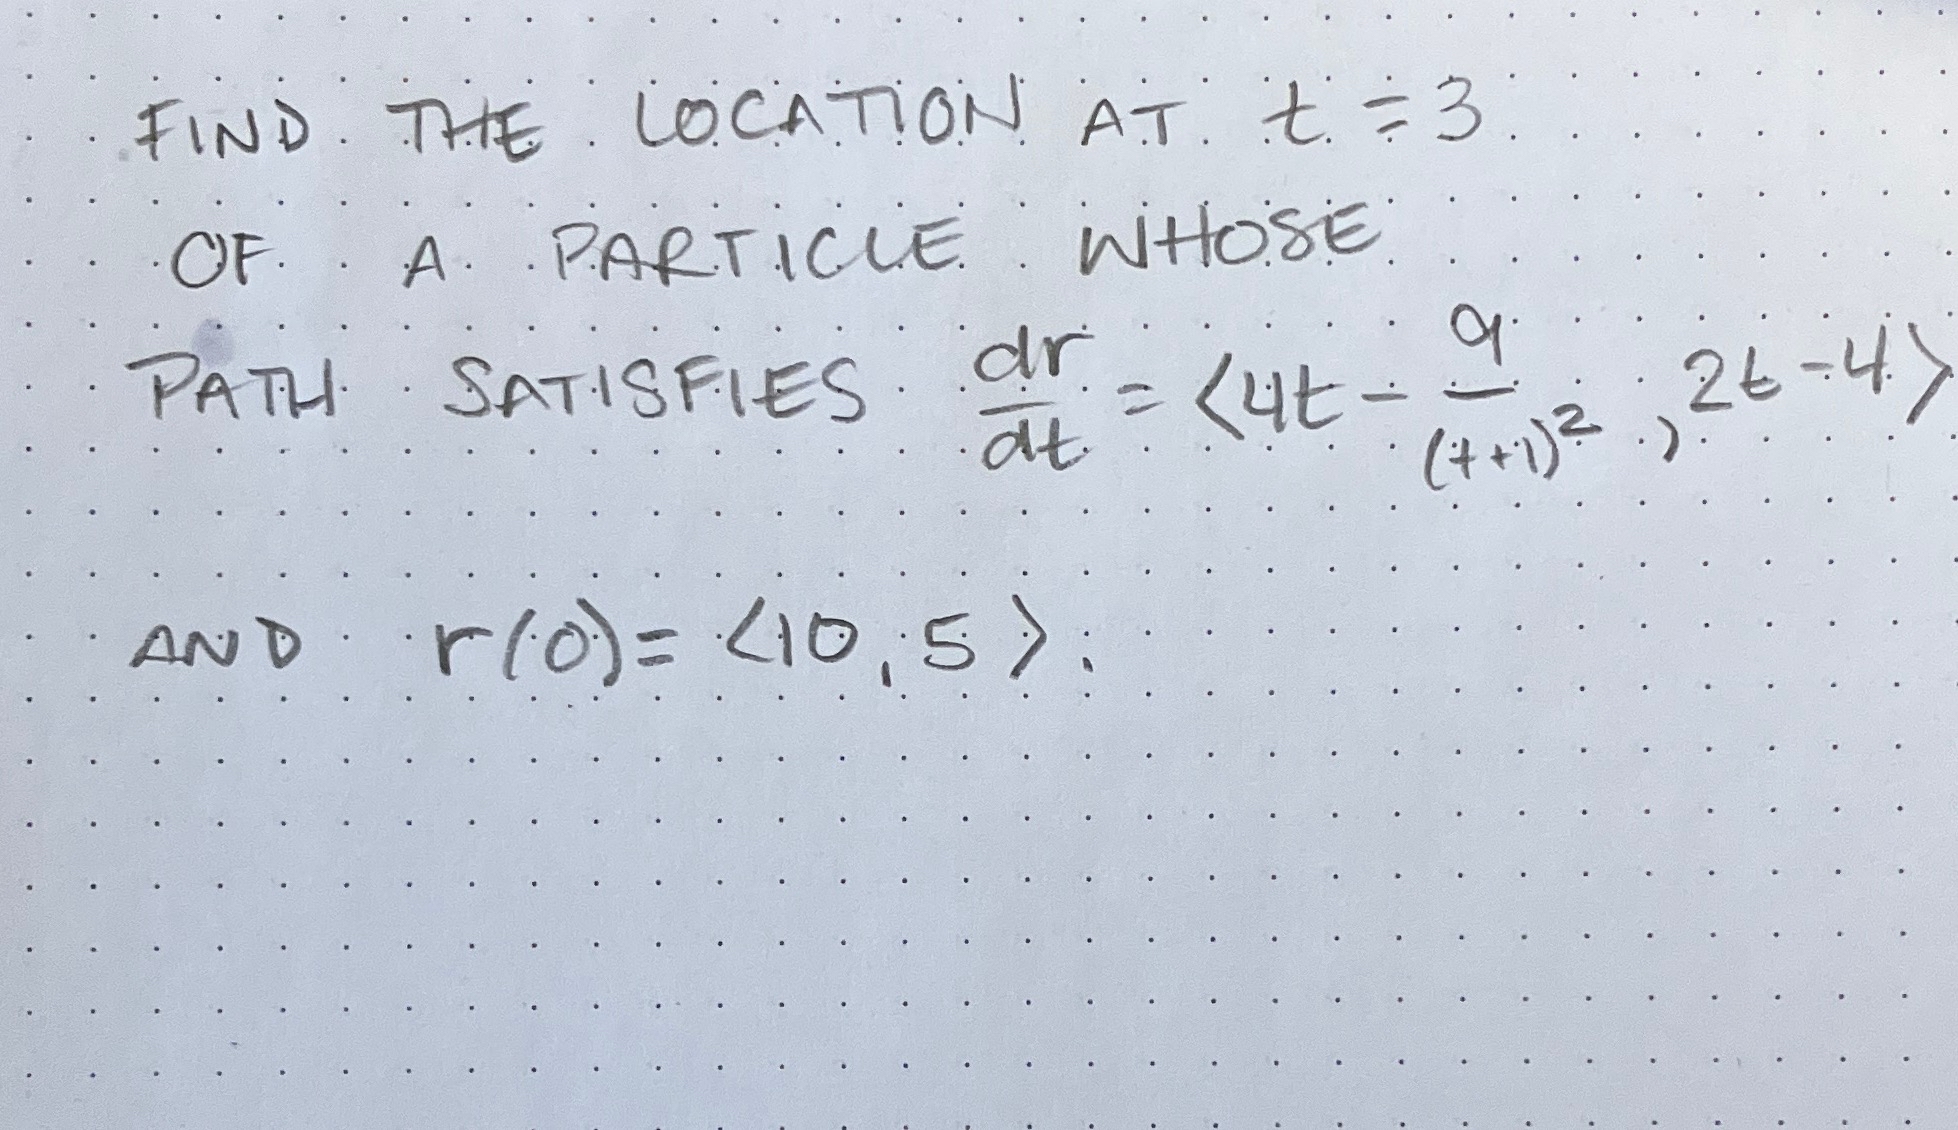 FIND THE LOCATION AT t = 3
OF A PARTICLE WHOSE
PATH SATISFIES dr/dt = ⟨4t - 9/(t+1)², 2t-4⟩
AND r(0) = ⟨10, 5⟩.